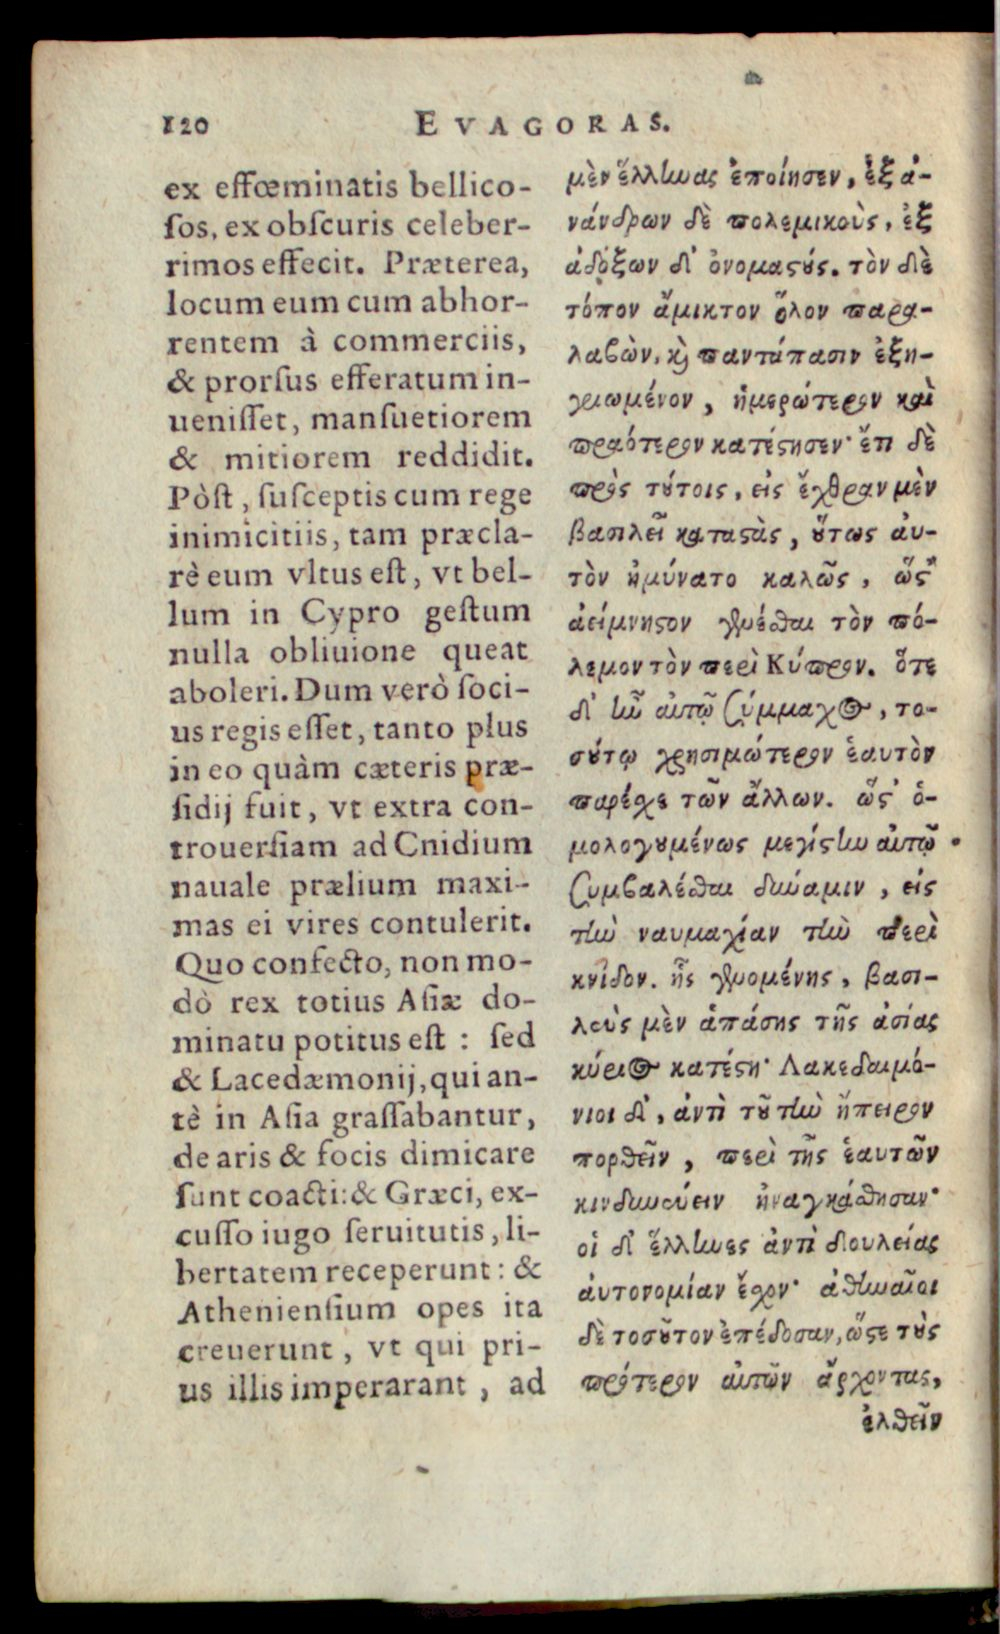 120
EVAGORAS.
ex effœminatis bellico-
ſos, ex obſcuris celeber-
rimos effecit. Præterea,
locum eum cum abhor-
rentem à commerciis,
& prorſus efferatum in-
ueniſſet, manſuetiorem
& mitiorem reddidit.
Pòſt, ſuſceptis cum rege
inimicitiis, tam præcla-
rè eum vltus eſt, vt bel-
lum in Cypro geſtum
nulla obliuione queat
aboleri. Dum verò ſoci-
us regis eſſet, tanto plus
in eo quàm cæteris præ-
ſidij fuit, vt extra con-
trouerſiam ad Cnidium
nauale prælium maxi-
mas ei vires contulerit.
Quo confecto, non mo-
dò rex totius Aſiæ do-
minatu potitus eſt : ſed
& Lacedæmonij, qui an-
tè in Aſia graſſabantur,
de aris & focis dimicare
ſunt coacti: & Græci, ex-
cuſſo iugo ſeruitutis, li-
bertatem receperunt : &
Athenienſium opes ita
creuerunt, vt qui pri-
us illis imperarant, ad
μὲν ἕλληνας ἐποίησεν, ἐξ ἀ-
νάνδρων δὲ πολεμικοὺς, ἐξ
ἀδόξων δ' ὀνομαςούς. τὸν δὲ
τόπον ἄμικτον ὅλον παρα-
λαβὼν, καὶ παντάπασιν ἐξη-
γριωμένον, ἡμερώτερον καὶ
πραότερον κατέςησεν· ἔτι δὲ
πρὸς τούτοις, εἰς ἔχθραν μὲν
βασιλεῖ καταςὰς, οὕτως αὐ-
τὸν ἠμύνατο καλῶς, ὥς'
ἀείμνηςον γενέσθαι τὸν πό-
λεμον τὸν περὶ Κύπρον. ὅτε
δ' ἦν αὐτῷ σύμμαχος, το-
σούτῳ χρησιμώτερον ἑαυτὸν
παρέχε τῶν ἄλλων. ὥς' ὁ-
μολογουμένως μεγίςην αὐτῷ
συμβαλέσθαι δύναμιν, εἰς
τὴν ναυμαχίαν τὴν περὶ
κνίδον. ἧς γενομένης, βασι-
λεὺς μὲν ἁπάσης τῆς ἀσίας
κύριος κατέςη· Λακεδαιμό-
νιοι δ', ἀντὶ τοῦ τὴν ἤπειρον
πορθεῖν, περὶ τῆς ἑαυτῶν
κινδυνεύειν ἠναγκάσθησαν·
οἱ δ' ἕλληνες ἀντὶ δουλείας
αὐτονομίαν ἔχον· ἀθηναῖοι
δὲ τοσοῦτον ἐπέδοσαν, ὥςε τοὺς
πρότερον αὐτῶν ἄρχοντας,
ἐλθεῖν